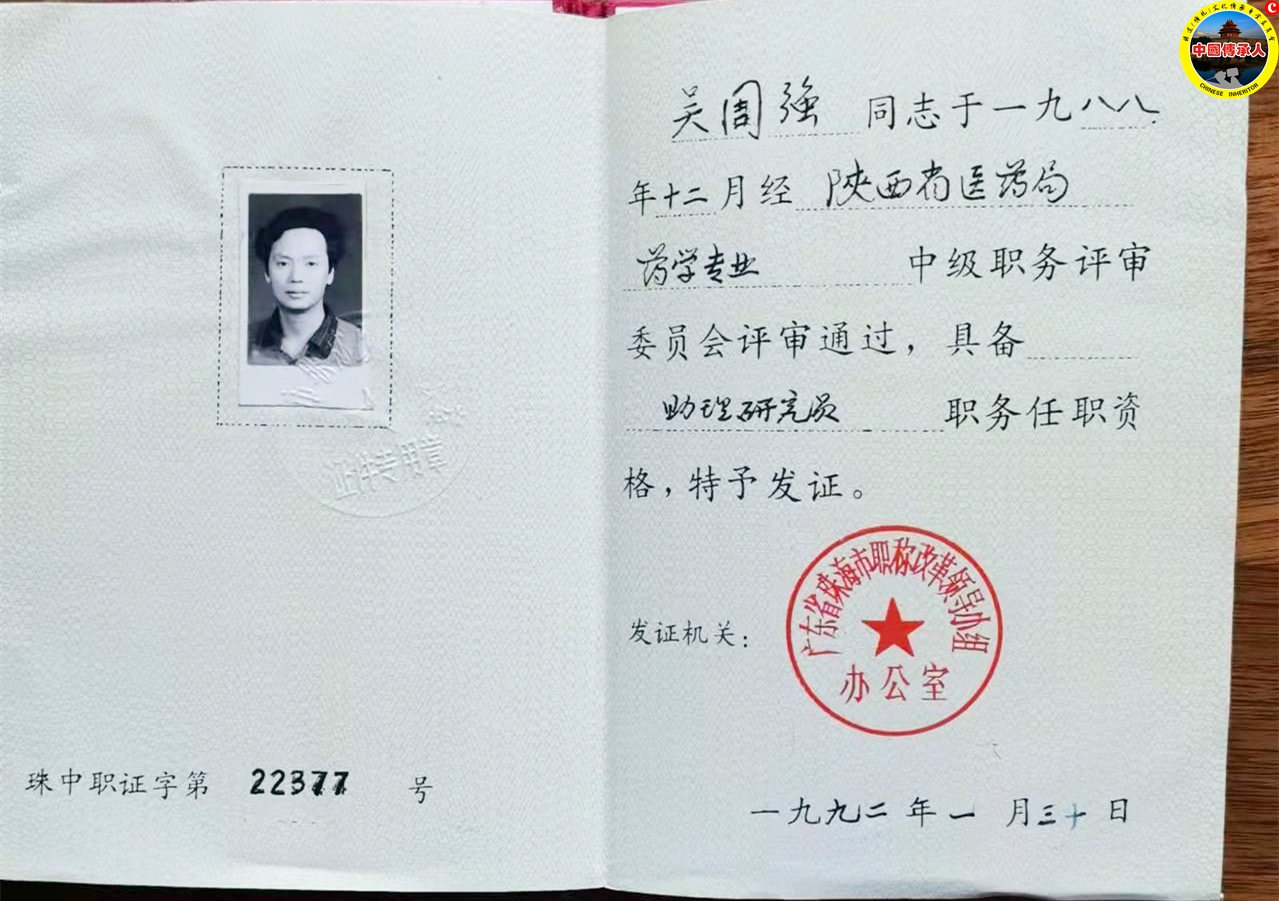 证件专用章
珠中职证字第 22377 号
吴周强 同志于一九八八
年十二月经 陕西省医药局
药学专业 中级职务评审
委员会评审通过，具备
助理研究员 职务任职资
格，特予发证。
广东省珠海市职称改革领导小组
办公室
发证机关：
一九九二年一月三十日
中國傳承人
CHINESE INHERITOR
C